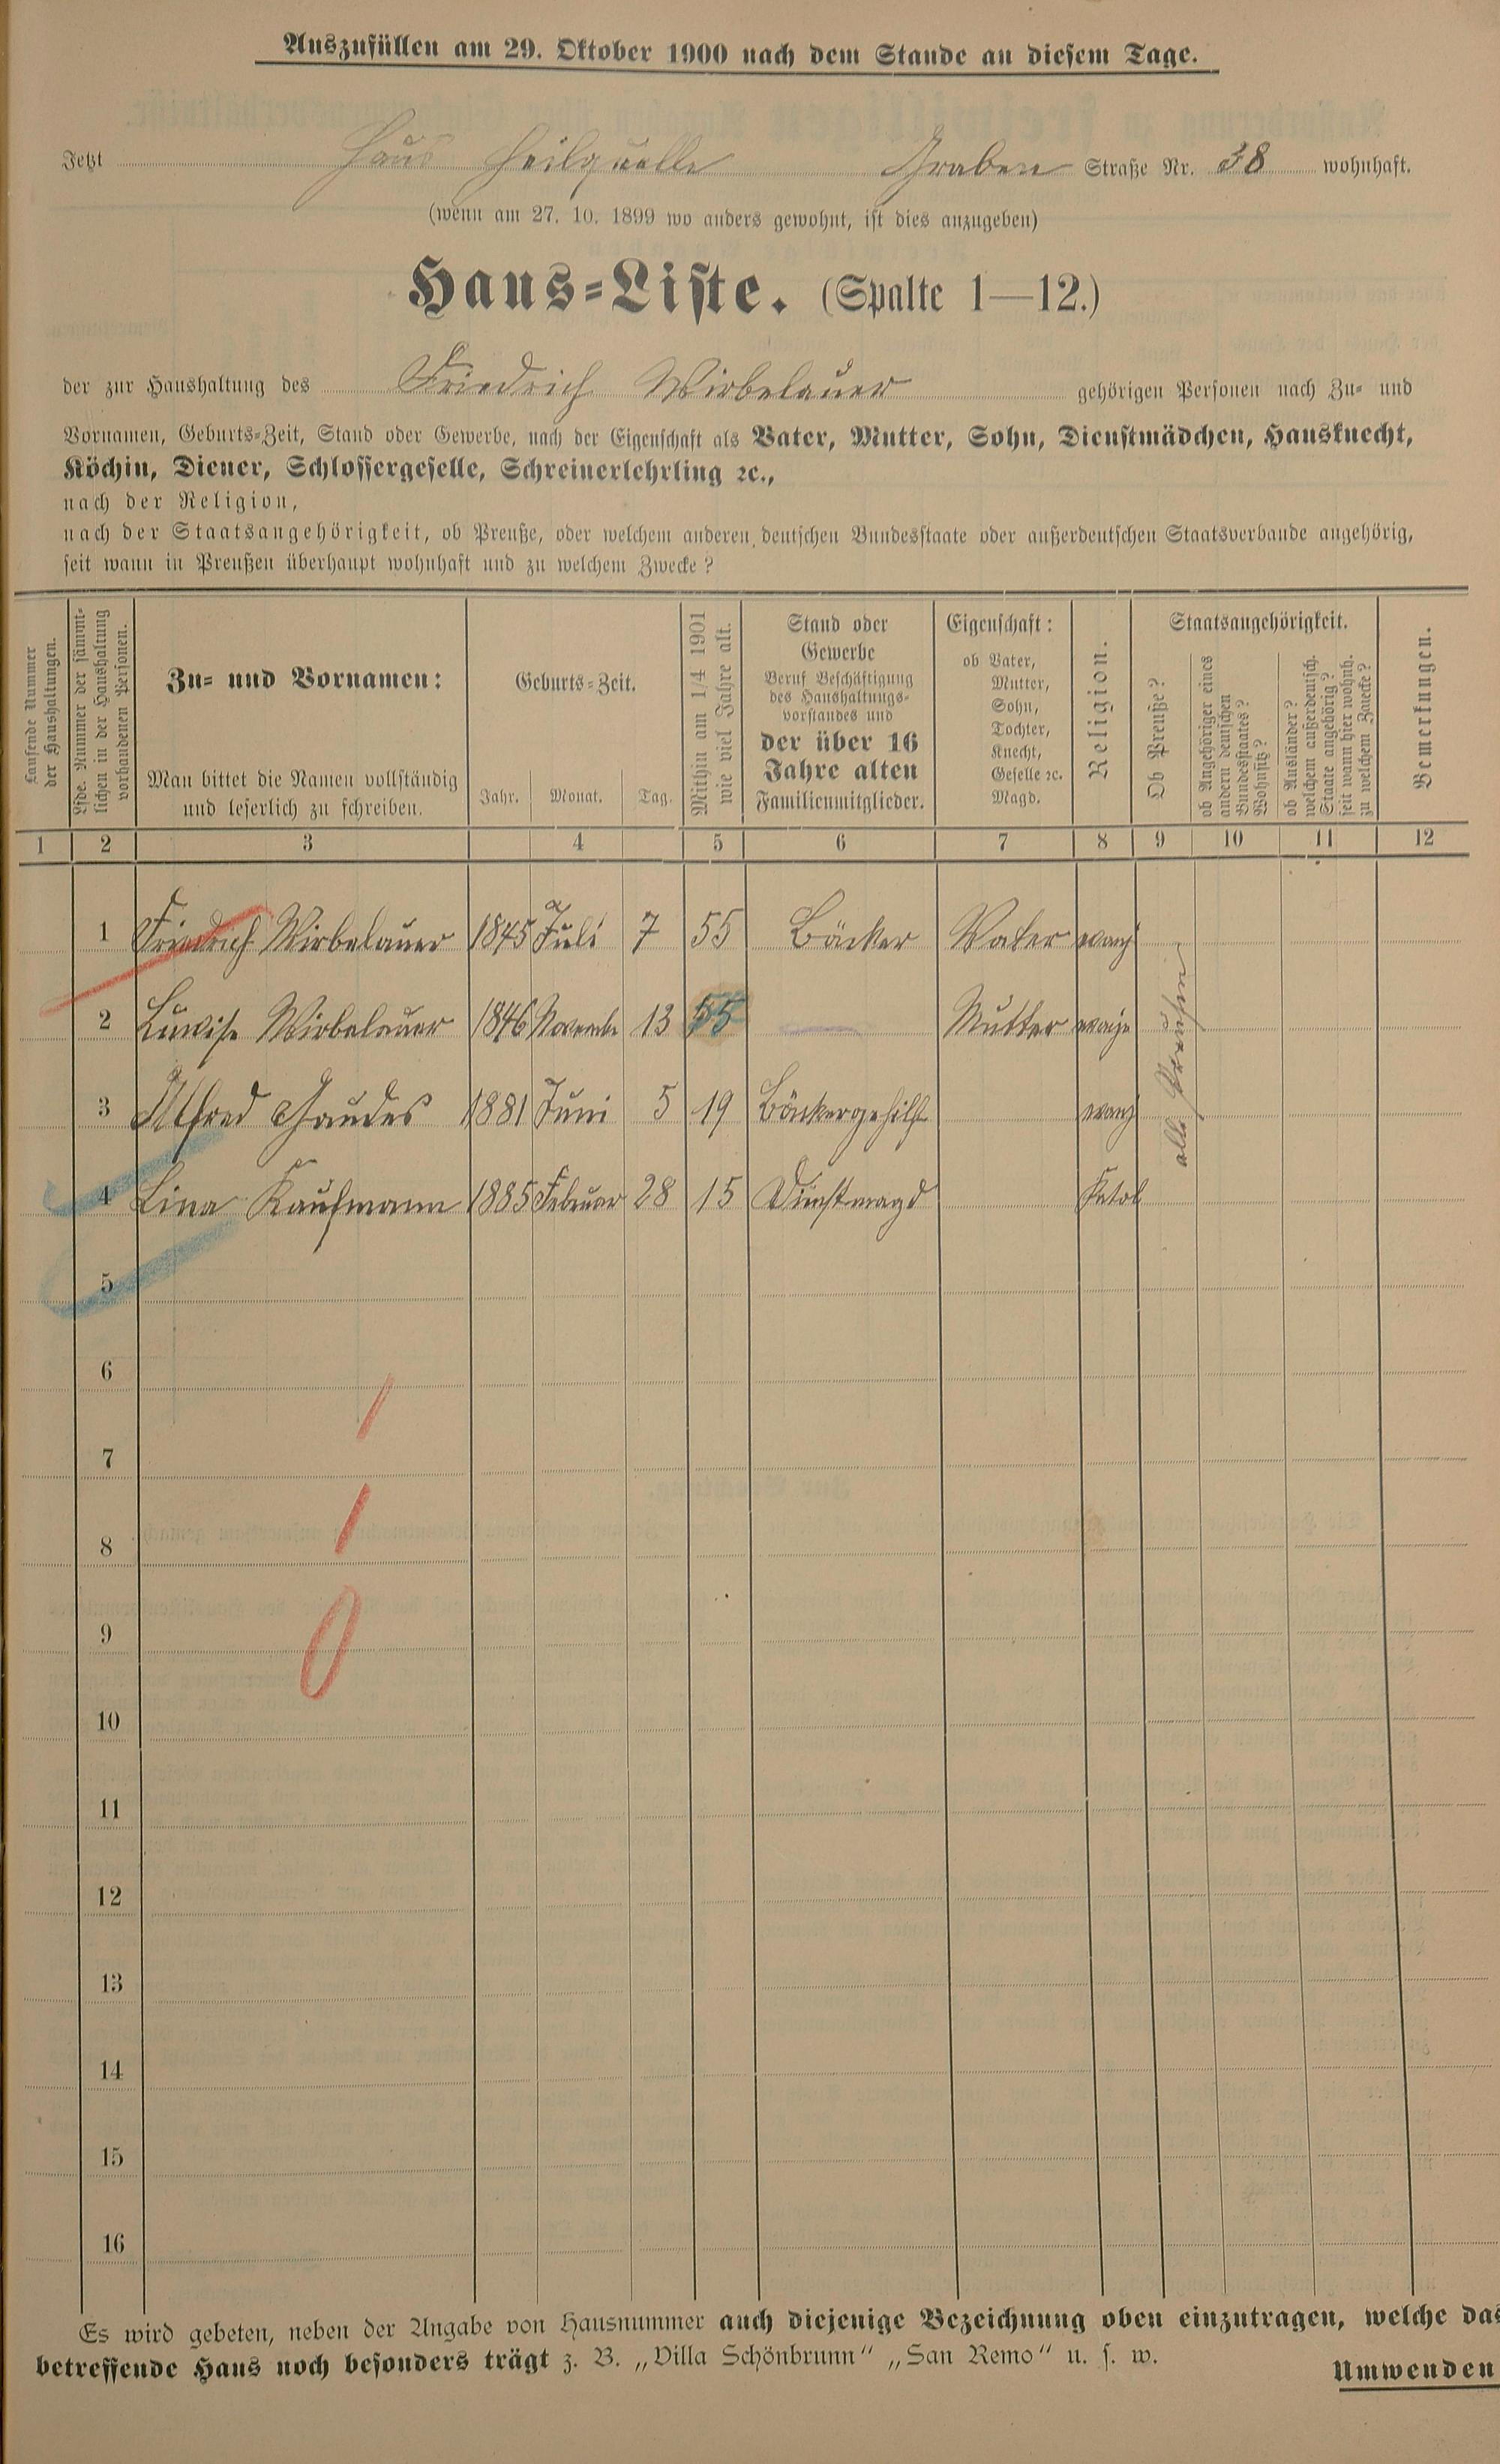 Auszufüllen am 29. Oktober 1900 nach dem Stande an diesem Tage.
Jetzt Haus Heilquelle Graben Straße Nr. 38 wohnhaft.
(wenn am 27. 10. 1899 wo anders gewohnt, ist dies anzugeben)
Haus-Liste. (Spalte 1—12.)
der zur Haushaltung des Friedrich Wirbelauer gehörigen Personen nach Zu- und
Vornamen, Geburts-Zeit, Stand oder Gewerbe, nach der Eigenschaft als Vater, Mutter, Sohn, Dienstmädchen, Hausknecht,
Köchin, Diener, Schlossergeselle, Schreinerlehrling ꝛc.,
nach der Religion,
nach der Staatsangehörigkeit, ob Preuße, oder welchem anderen deutschen Bundesstaate oder außerdeutschen Staatsverbande angehörig,
seit wann in Preußen überhaupt wohnhaft und zu welchem Zwecke?
Laufende Nummer
der Haushaltungen.
Lfde. Nummer der sämmt-
lichen in der Haushaltung
vorhandenen Personen.
Zu- und Vornamen:
Man bittet die Namen vollständig
und leserlich zu schreiben.
Geburts-Zeit.
Jahr. Monat. Tag.
Mithin am 1/4 1901
wie viel Jahre alt.
Stand oder
Gewerbe
Beruf Beschäftigung
des Haushaltungs-
vorstandes und
der über 16
Jahre alten
Familienmitglieder.
Eigenschaft:
ob Vater,
Mutter,
Sohn,
Tochter,
Knecht,
Geselle ꝛc.
Magd.
Religion.
Staatsangehörigkeit.
Ob Preuße?
ob Angehöriger eines
andern deutschen
Bundesstaates?
Wohnsitz?
ob Ausländer?
welchem außerdeutsch.
Staate angehörig?
seit wann hier wohnh.
zu welchem Zwecke?
Bemerkungen.
1 2 3 4 5 6 7 8 9 10 11 12
1 Friedrich Wirbelauer 1845 Juli 7 55 Bäcker Vater evang
2 Luise Wirbelauer 1846 November 13 55 Mutter
3 Alfred Gaudes 1881 Juni 5 19 Bäckergehilfe evang
4 Lina Kaufmann 1885 Februar 28 15 Dienstmagd Katol
alle Preußen
5
6
7
8
9
10
11
12
13
14
15
16
Es wird gebeten, neben der Angabe von Hausnummer auch diejenige Bezeichnung oben einzutragen, welche das
betreffende Haus noch besonders trägt z. B. „Villa Schönbrunn“ „San Remo“ u. s. w.
Umwenden